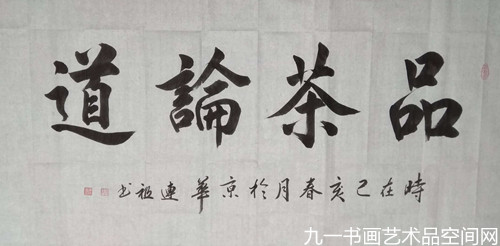 品茶論道
時在己亥春月於京華連祖书
九一书画艺术品空间网